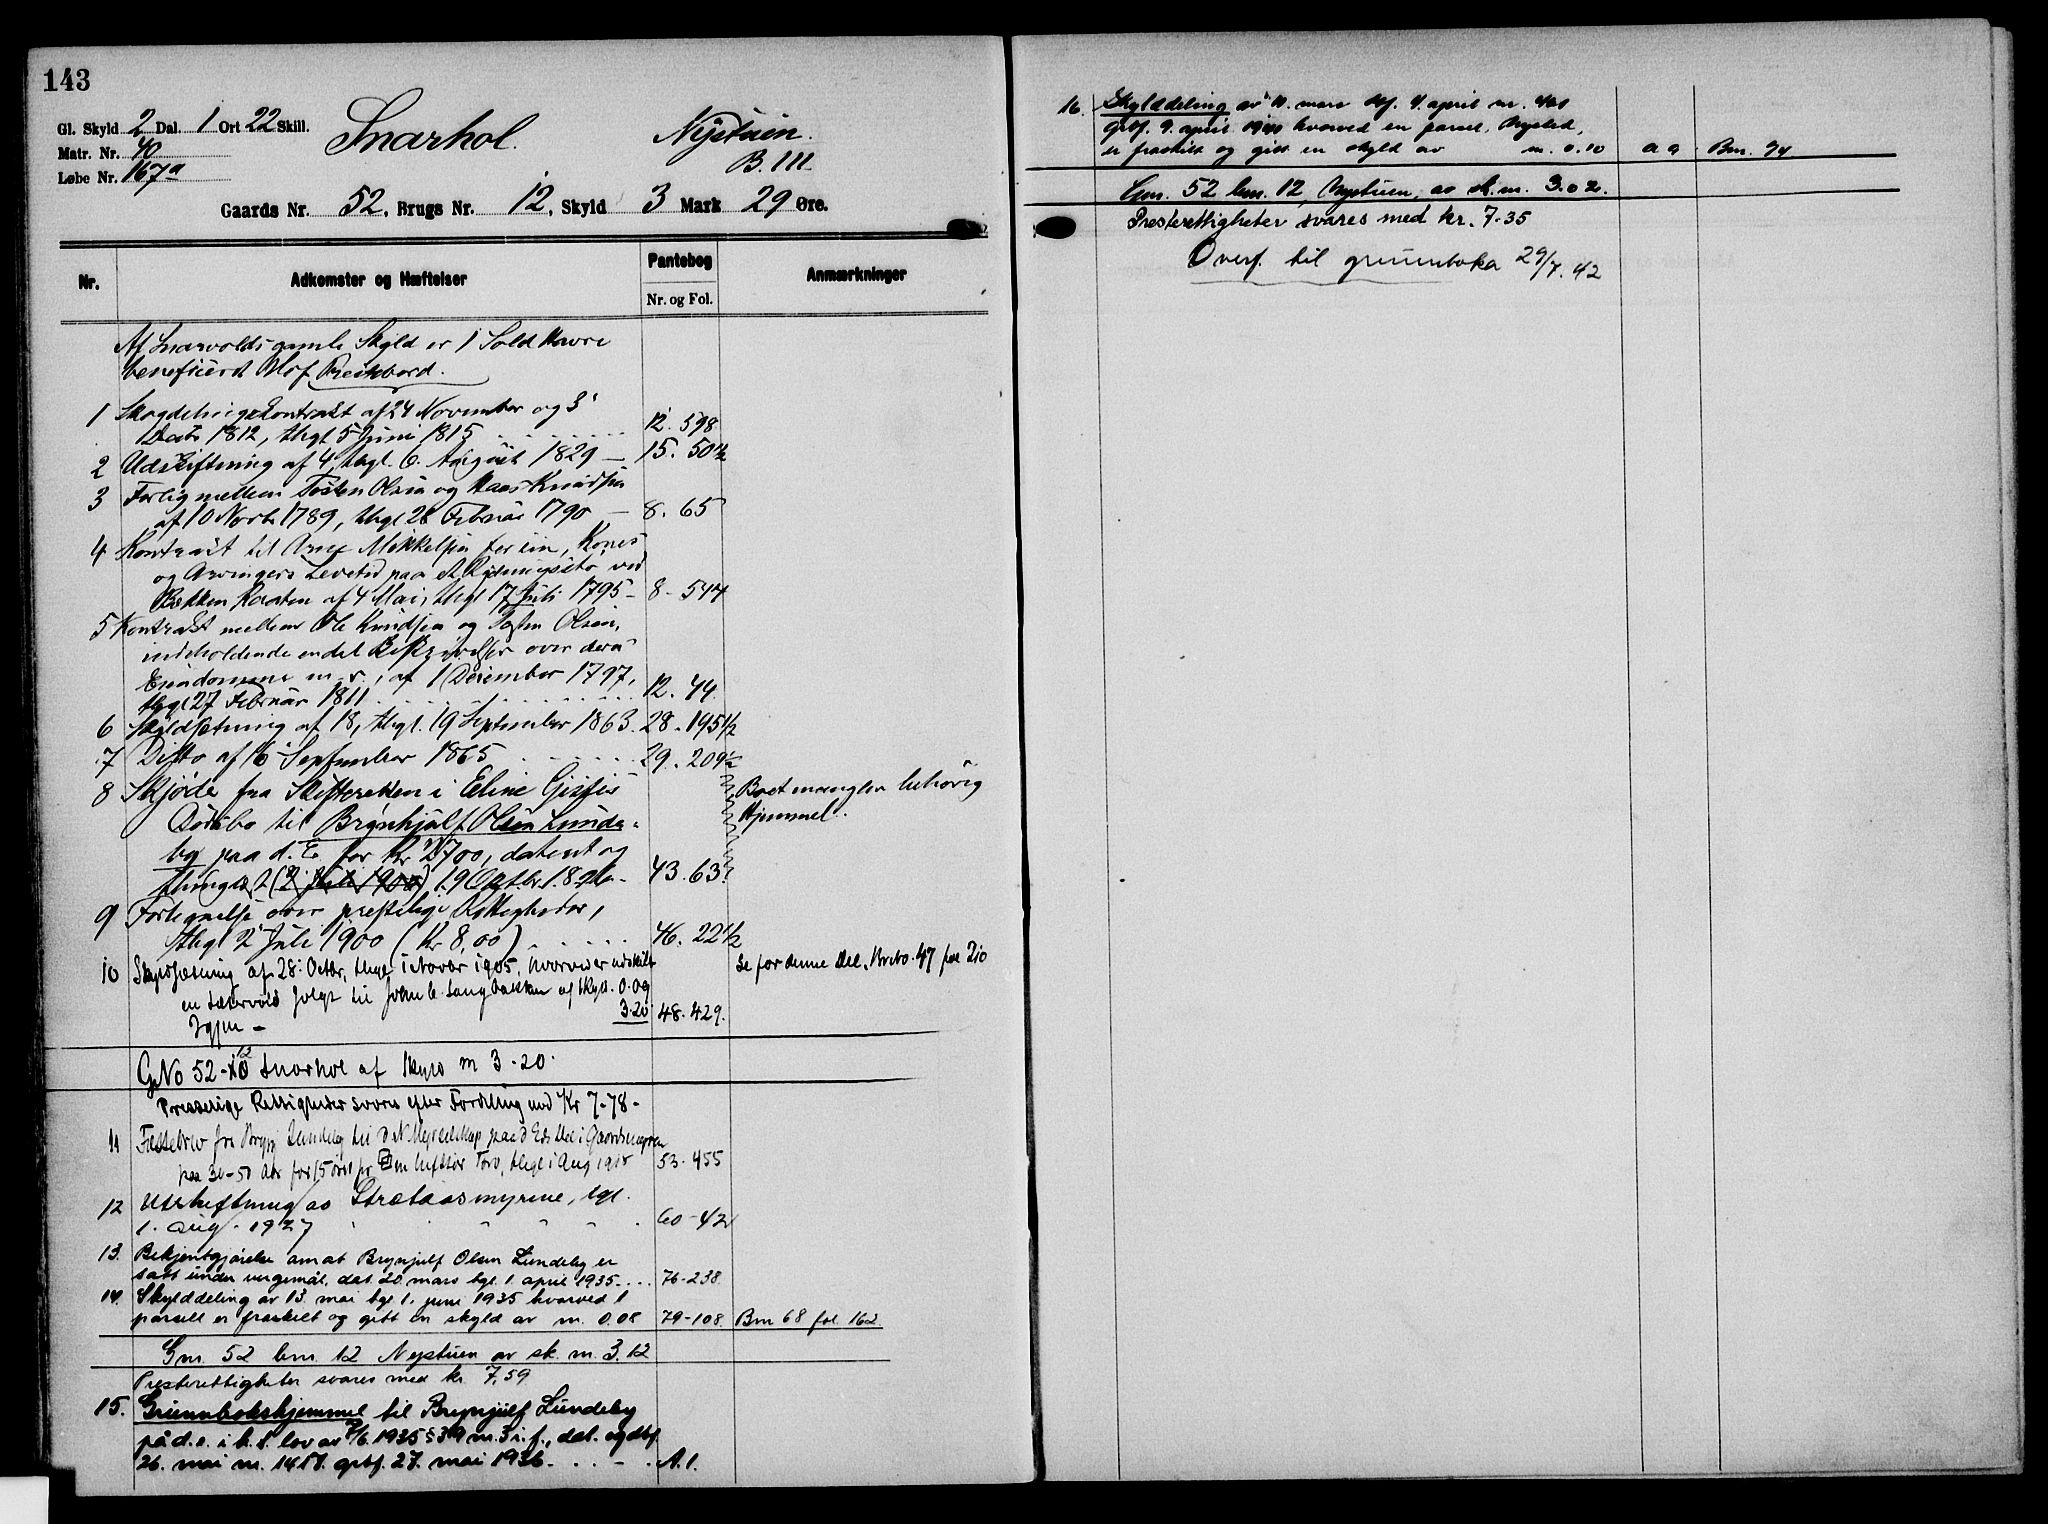 143
Gl. Skyld 2 Dal. 1 Ort 22 Skill.
Matr. Nr. 40
Løbe Nr. 167a
Snarhol.
Nystuen.
B. III
Gaards Nr. 52, Brugs Nr. 12, Skyld 3 Mark 29 Øre.
Nr.
Adkomster og Hæftelser
Pantebog
Nr. og Fol.
Anmærkninger
Af Snarvolds gamle Skyld er 1 Sold Havre
beneficeret
1 Skogdelingskontrakt af 24 November og 3
1812, thgl 5 Juni 1815 12. 598
2 Udskiftning af 4, thgl. 6. August 1829 — 15. 50 1/2
3 Forlig mellem Tosten Olsen og Knudsen
af 10 Novbr 1789, thgl 26 Februar 1790 — 8. 65
4 Kontrakt til Arne Mikkelsen for sin, Kones
og Arvingers Levetid paa et Rydningssted ved
Bækken af 4 Mai, thgl 17 Juli 1795 — 8 - 544
5 Kontrakt mellem Ole Knudsen og Tosten Olsen,
indeholdende endel over deres
Eiendomme m.v., af 1 December 1797,
thgl 27 Februar 1811 12. 44
6 Skyldsætning af 18, thgl. 19 September 1863. 28 - 195 1/2
7 Ditto af 16 September 1865 29. 209 1/2
8 Skjøde fra Skifteretten i Eline
Dødsbo til Brynhjulf Olsen Lunde-
by paa d. E. for Kr 2700, datert og
thinglæst (2 Juli 1900) 19 43. 63
Boet mangler behørig
Hjemmel.
9 Fortegnelse over prestelige Rettigheder,
thgl 2 Juli 1900 (Kr 8,00) 46. 22 1/2
10 Skyldsætning af 28. Octbr, thgl 1 Novbr 1905, hvorved er udskilt
en solgt til John C. Langbakken af Skyld 0.09
Igjen — 3.20 48. 429.
Se for denne Del, Brno. 47 fol 210
GNo 52 - 12 Snarhol af Skyld m 3 - 20.
Presselige Rettigheder svares efter Fordeling med Kr 7 - 78 -
11 Fæstebrev fra Brynj Lundeby til Det N Myrselskap paa d E
paa 30 - 50 Aar for 15 øre pr Torv, thgl 1 Aug 53 - 455
12 Utskiftning av Strætaasmyrene, tgl.
1. aug. 1927 60 - 42
13. Bekjentgjørelse om at Brynjulf Olsen Lundeby er
satt under vergemål, dat. 20. mars tgl. 1. april 1935 76 - 238.
14. Skylddeling av 13. mai tgl 1. juni 1935 hvorved 1
parsell er fraskilt og gitt en skyld av m. 0.08 79 - 108. Bnr 68 fol. 162.
Gnr. 52 bnr. 12 Nystuen av sk. m. 3.12
Presterettigheter svares med kr. 7,59
15. Grunnbokshjemmel til Brynjulf Lundeby
på d.e. i h.t. lov av 7/6. 1935 § 39 nr. 3 i.f., dat. og dbf.
26. mai nr. grbf. 27. mai 1936 A. 1.
16. Skylddeling av 11. mars dbf. 4. april nr.
grbf. 9. april 1940 hvorved en parsel, Nysted,
er fraskilt og gitt en skyld av m. 0.10 a a Bnr. 74
Gnr. 52 bnr. 12, Nystuen, av sk.m. 3.02.
Presterettigheter svares med kr. 7-35
Overf. til grunnboka 29/7. 42